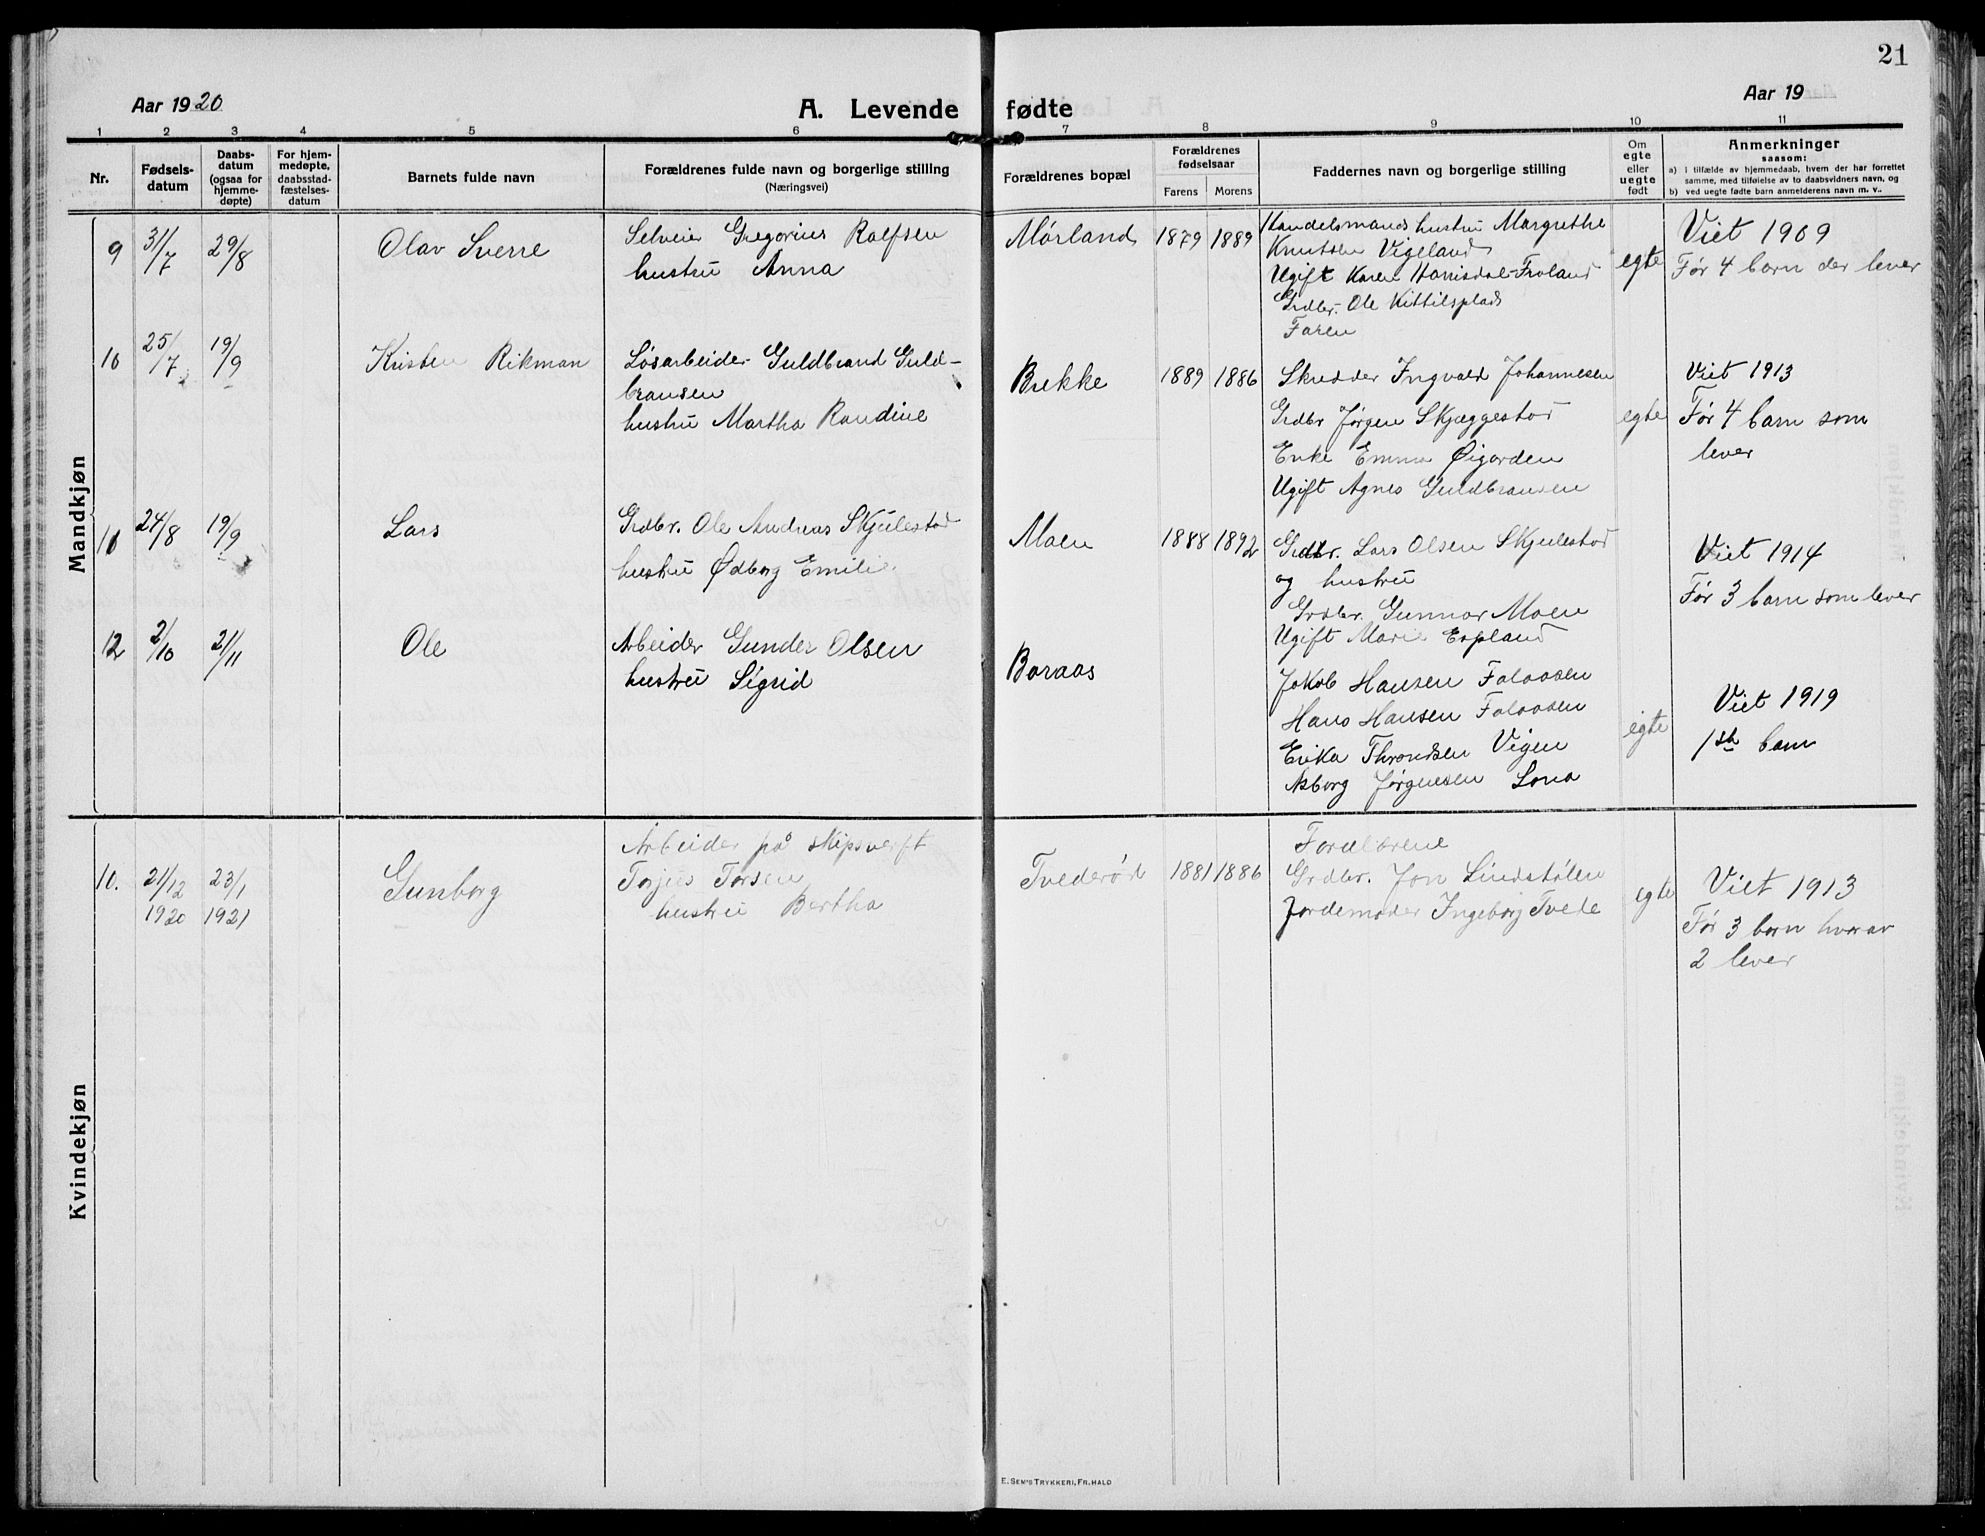 21
Aar 1920
A. Levende fødte
Aar 19
1 2 3 4 5 6 7 8 9 10 11
Nr.
Fødsels-
datum
Daabs-
datum
(ogsaa for
hjemme-
døpte)
For hjem-
medøpte,
daabsstad-
fæstelses-
datum
Barnets fulde navn
Forældrenes fulde navn og borgerlige stilling
(Næringsvei)
Forældrenes bopæl
Forældrenes
fødselsaar
Farens Morens
Faddernes navn og borgerlige stilling
Om
egte
eller
uegte
født
Anmerkninger
saasom:
a) i tilfælde av hjemmedaab, hvem der har forrettet
samme, med tilføielse av to daabsvidners navn, og
b) ved uegte fødte barn anmelderens navn m. v..
Mandkjøn
9 31/7 29/8 Olav Sverre
Selveier Gregorius Rolfsen
hustru Anna
Mørland 1879 1889
Handelsmands hustru Margrethe
Knutsen Vigeland
Ugift Karen Froland
Grdbr. Ole Kittilsplads
Faren
egte
Viet 1909
Før 4 barn der lever
10 25/7 19/9 Kristen Rikman
Løsarbeider Guldbrand Guld-
bransen
hustru Martha Randine
Brekke 1889 1886
Skredder Ingvald Johannesen
Grdbr Jørgen Skjæggestad
Enke Emma Øigarden
Ugift Agnes Guldbransen
egte
Viet 1913
Før 4 barn som
lever
11 24/8 19/9 Lars
Grdbr. Ole Andreas Skjulestad
hustru Ødborg Emilie
Moen 1888 1892
Grdbr. Lars Olsen Skjulestad
og hustru
Grdbr. Gunnar Moen
Ugift Marie Espland
Viet 1914
Før 3 barn som lever
12 2/10 21/11 Ole
Arbeider Gunder Olsen
hustru Sigrid
Boraas
Jakob Hansen Falaasen
Hans Hansen Falaasen
Erika Throndsen Vigen
Asborg Jørgensen Lona
egte
Viet 1919
1ste barn
Kvindekjøn
10. 21/12 1920 23/1 1921 Gunborg
Arbeider på skipsverft
Torjus Torsen
hustru Bertha
Tvederød 1881 1886
Forældrene
Grdbr. Jon Lindstølen
Jordemoder Ingeborg Tvede
egte
Viet 1913
Før 3 barn hvorav
2 lever
E. Sem's Trykkeri, Fr.hald